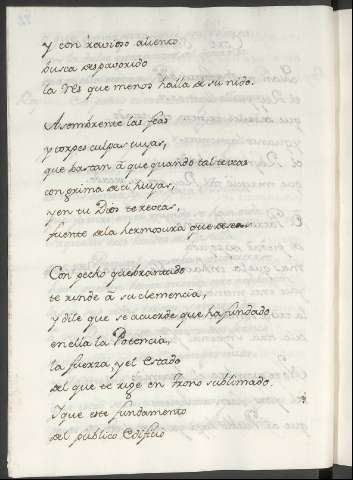 y con ravioso aliento
busca despavorido
la Res que menos halla de su nido.
Asombrente las feas
y torpes culpas tuyas,
que bastan â que quando tal te veas
con grima de ti huyas,
y en tu Dios te recreas,
fuente de la hermosura que deseas
Con pecho quebrantado
te rinde â su clemencia,
y dile que se acuerde que ha fundado
en ella la Potencia,
la fuerza y el estado
del que te rige en Trono sublimado.
Y que este fundamento
del publico Edificio